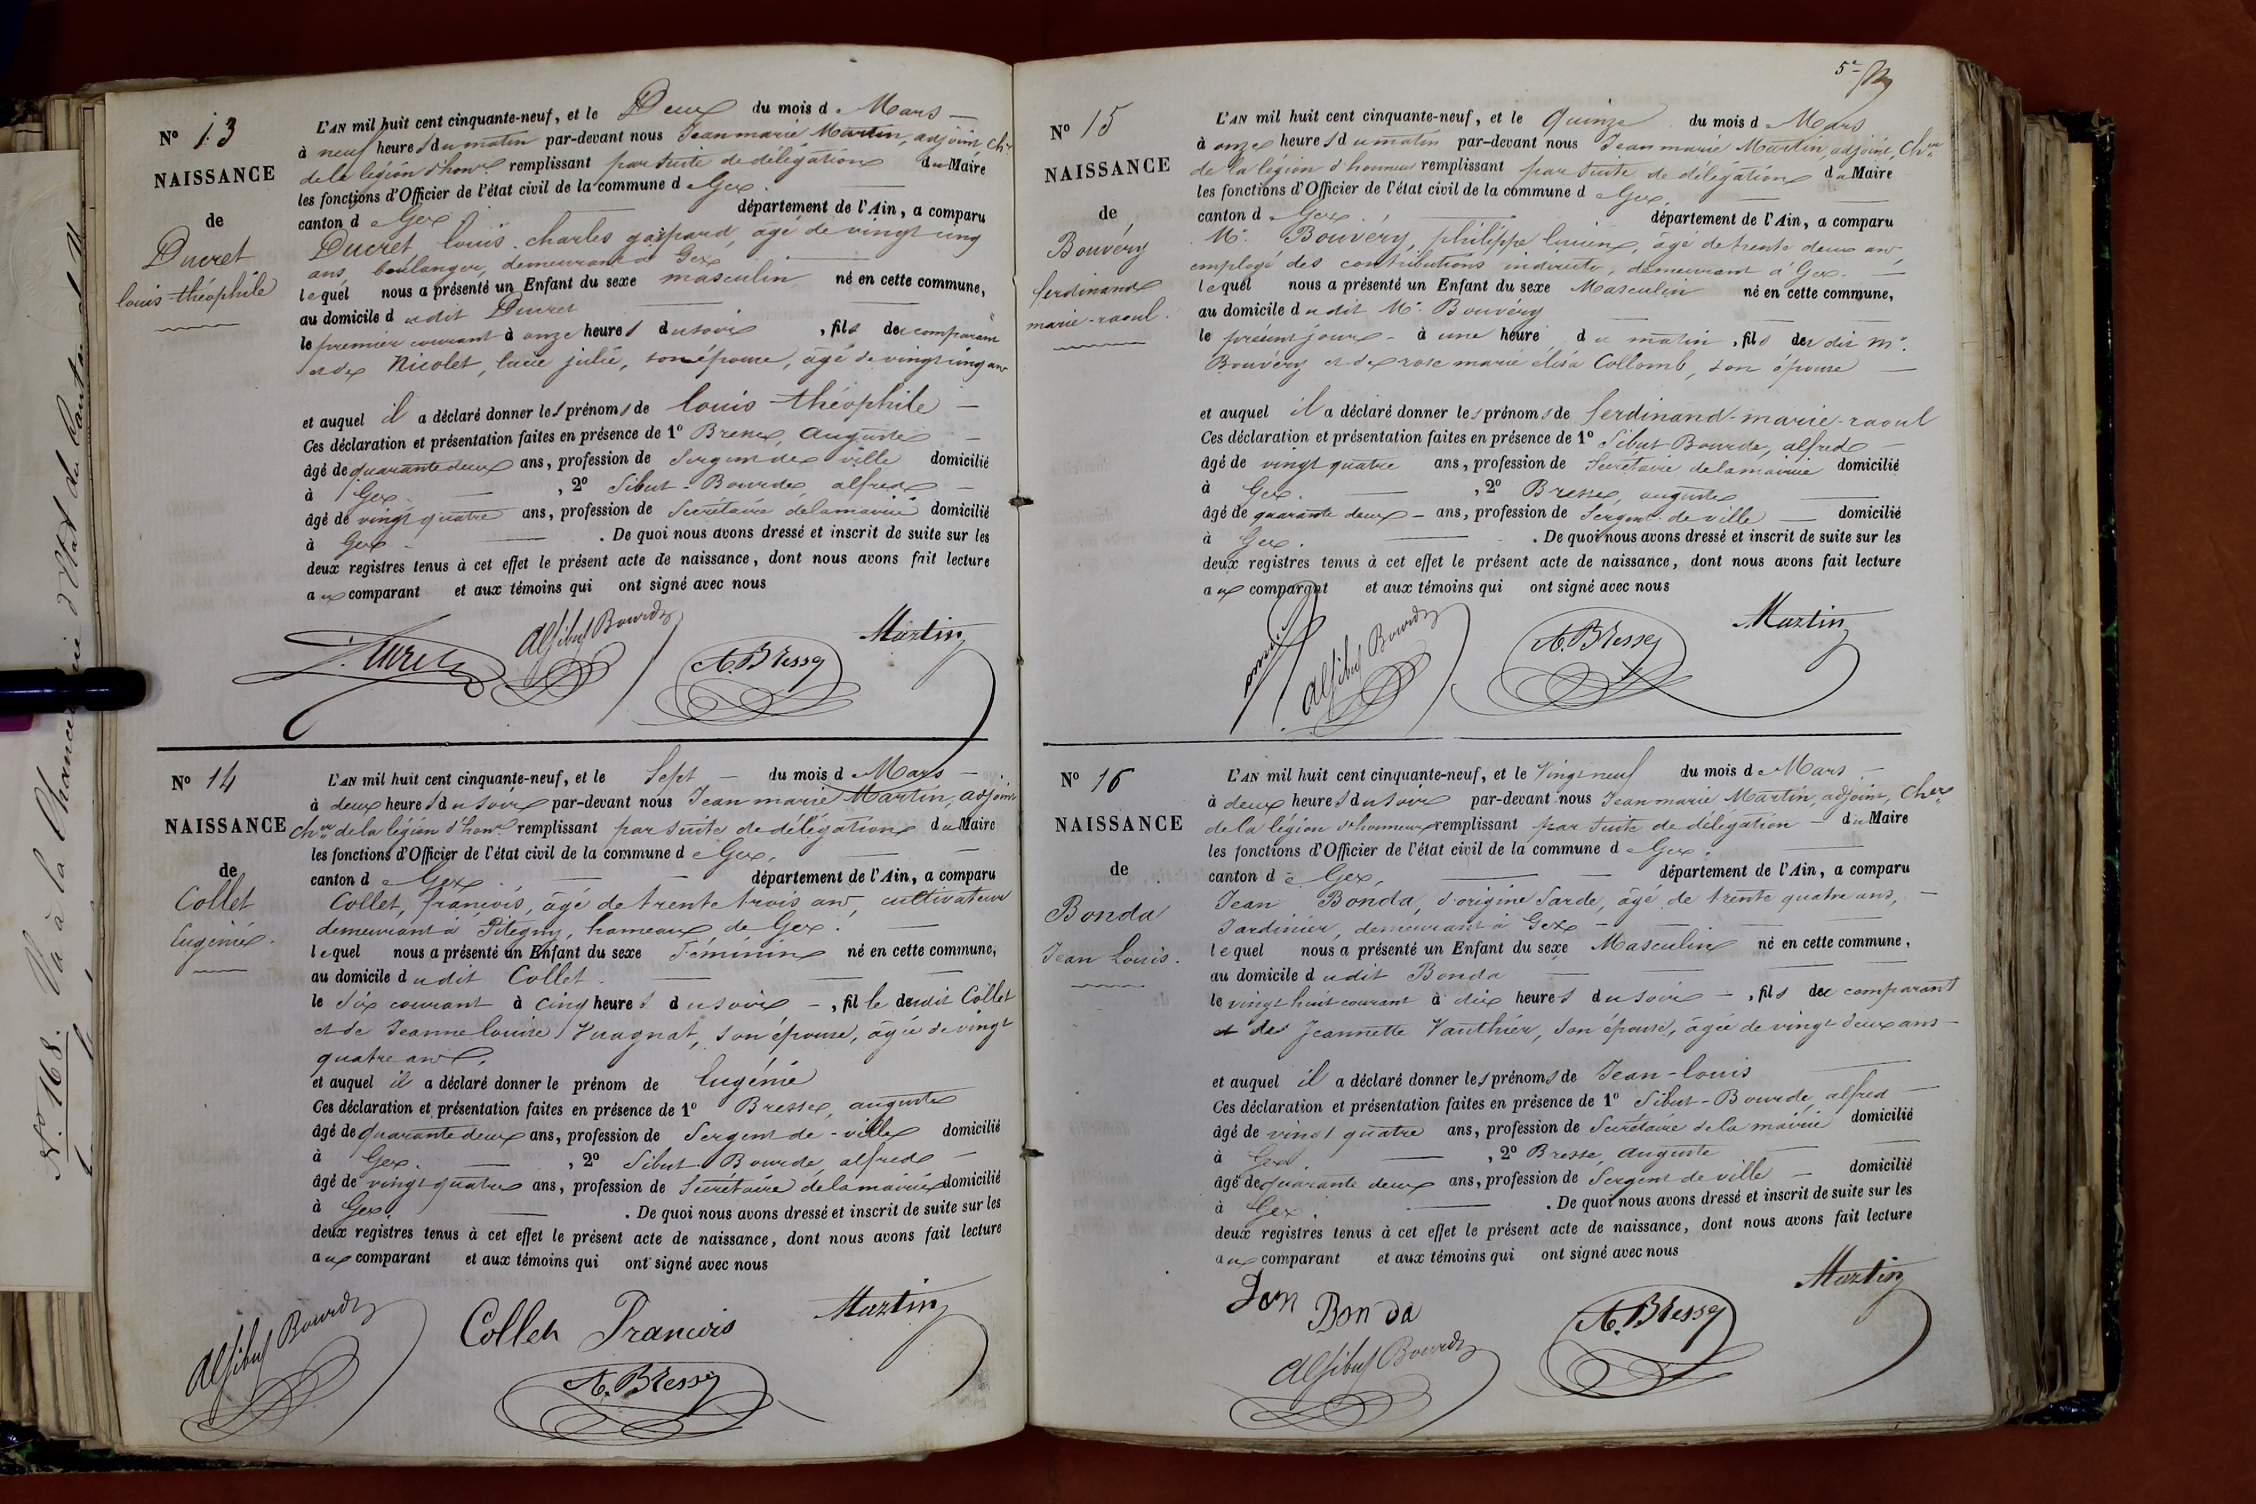 N° 13
NAISSANCE
de
Ducret
louis-théophile
L'AN mil huit cent cinquante-neuf, et le Deux du mois d e Mars
à neuf heures du matin par-devant nous Jean marie Martin, adjoint Ch.er
de la légion d'hon.r remplissant par suite de délégation du Maire
les fonctions d'Officier de l'état civil de la commune d e Gex.
canton d e Gex. département de l'Ain, a comparu
Ducret louis charles gaspard, âgé de vingt cinq
ans, boulanger, demeurant à Gex
lequel nous a présenté un Enfant du sexe masculin né en cette commune,
au domicile d udit Ducret
le premier courant à onze heures du soir, fils du comparant
et de Nicolet, julie, son épouse, âgé de vingt cinq ans
et auquel il a déclaré donner les prénoms de louis théophile
Ces déclaration et présentation faites en présence de 1° Bresse, auguste
âgé de quarante deux ans, profession de Sergent de ville domicilié
à Gex. , 2° Sibut-Bourde, alfred
âgé de vingt quatre ans, profession de Secrétaire de la mairie domicilié
à Gex . De quoi nous avons dressé et inscrit de suite sur les
deux registres tenus à cet effet le présent acte de naissance, dont nous avons fait lecture
aux comparant et aux témoins qui ont signé avec nous
Al Sibut Bourde
A. Bresse
Martin
N° 14
NAISSANCE
de
Collet
Eugénie.
L'AN mil huit cent cinquante-neuf, et le Sept du mois d e Mars
à deux heures du soir par-devant nous Jean marie Martin, adjoint
Ch.er de la légion d'hon.r remplissant par suite de délégation du Maire
les fonctions d'Officier de l'état civil de la commune d e Gex,
canton d e Gex département de l'Ain, a comparu
Collet, françois, âgé de trente trois ans, cultivateur
demeurant à Pitegny, hameau de Gex.
lequel nous a présenté un Enfant du sexe Féminin né en cette commune,
au domicile d udit Collet.
le Six courant à cinq heures du soir, fille dudit Collet
et de Jeanne louise Vuagnat, son épouse, âgée de vingt
quatre ans,
et auquel il a déclaré donner le prénom de Eugénie
Ces déclaration et présentation faites en présence de 1° Bresse, auguste
âgé de quarante deux ans, profession de Sergent de-ville domicilié
à Gex. , 2° Sibut Bourde, alfred
âgé de vingt quatre ans, profession de Secrétaire de la mairie domicilié
à Gex . De quoi nous avons dressé et inscrit de suite sur les
deux registres tenus à cet effet le présent acte de naissance, dont nous avons fait lecture
aux comparant et aux témoins qui ont signé avec nous
Al Sibut Bourde
Collet Francois
Martin
A. Bresse
N° 15
NAISSANCE
de
Bouvéry
ferdinand
marie-raoul.
L'AN mil huit cent cinquante-neuf, et le Quinze du mois d e Mars
à onze heures du matin par-devant nous Jean marie Martin, adjoint, Ch.er
de la légion d'honneur remplissant par suite de délégation du Maire
les fonctions d'Officier de l'état civil de la commune d e Gex,
canton d e Gex. département de l'Ain, a comparu
M.r Bouvéry, philippe lucien, âgé de trente deux ans,
employé des contributions indirectes, demeurant à Gex.
lequel nous a présenté un Enfant du sexe Masculin né en cette commune,
au domicile d udit M.r Bouvéry
le présent jour à une heure du matin, fils du dit M.r
Bouvéry et de rose marie élisa Collomb, son épouse
et auquel il a déclaré donner les prénoms de ferdinand-marie-raoul
Ces déclaration et présentation faites en présence de 1° Sibut-Bourde, alfred
âgé de vingt quatre ans, profession de Secrétaire de la mairie domicilié
à Gex. , 2° Bresse, auguste
âgé de quarante deux ans, profession de Sergent-de ville domicilié
à Gex. . De quoi nous avons dressé et inscrit de suite sur les
deux registres tenus à cet effet le présent acte de naissance, dont nous avons fait lecture
aux comparant et aux témoins qui ont signé avec nous
Al Sibut Bourde
A. Bresse
Martin
N° 16
NAISSANCE
de
Bonda
Jean Louis.
L'AN mil huit cent cinquante-neuf, et le Vingt neuf du mois d e Mars
à deux heures du soir par-devant nous Jean marie Martin, adjoint, Ch.er
de la légion d'honneur remplissant par suite de délégation du Maire
les fonctions d'Officier de l'état civil de la commune d e Gex.
canton d e Gex, département de l'Ain, a comparu
Jean Bonda, d'origine Sarde, âgé de trente quatre ans,
Jardinier, demeurant à Gex
lequel nous a présenté un Enfant du sexe Masculin né en cette commune,
au domicile d udit Bonda
le vingt huit courant à dix heures du soir, fils du comparant
et de Jeannette Vauthier, son épouse, âgée de vingt deux ans
et auquel il a déclaré donner les prénoms de Jean-louis
Ces déclaration et présentation faites en présence de 1° Sibut-Bourde, alfred
âgé de vingt quatre ans, profession de Secrétaire de la mairie domicilié
à Gex. , 2° Bresse, auguste
âgé de quarante deux ans, profession de Sergent de ville domicilié
à Gex. . De quoi nous avons dressé et inscrit de suite sur les
deux registres tenus à cet effet le présent acte de naissance, dont nous avons fait lecture
aux comparant et aux témoins qui ont signé avec nous
Jen Bonda
Martin
A. Bresse
Al Sibut Bourde